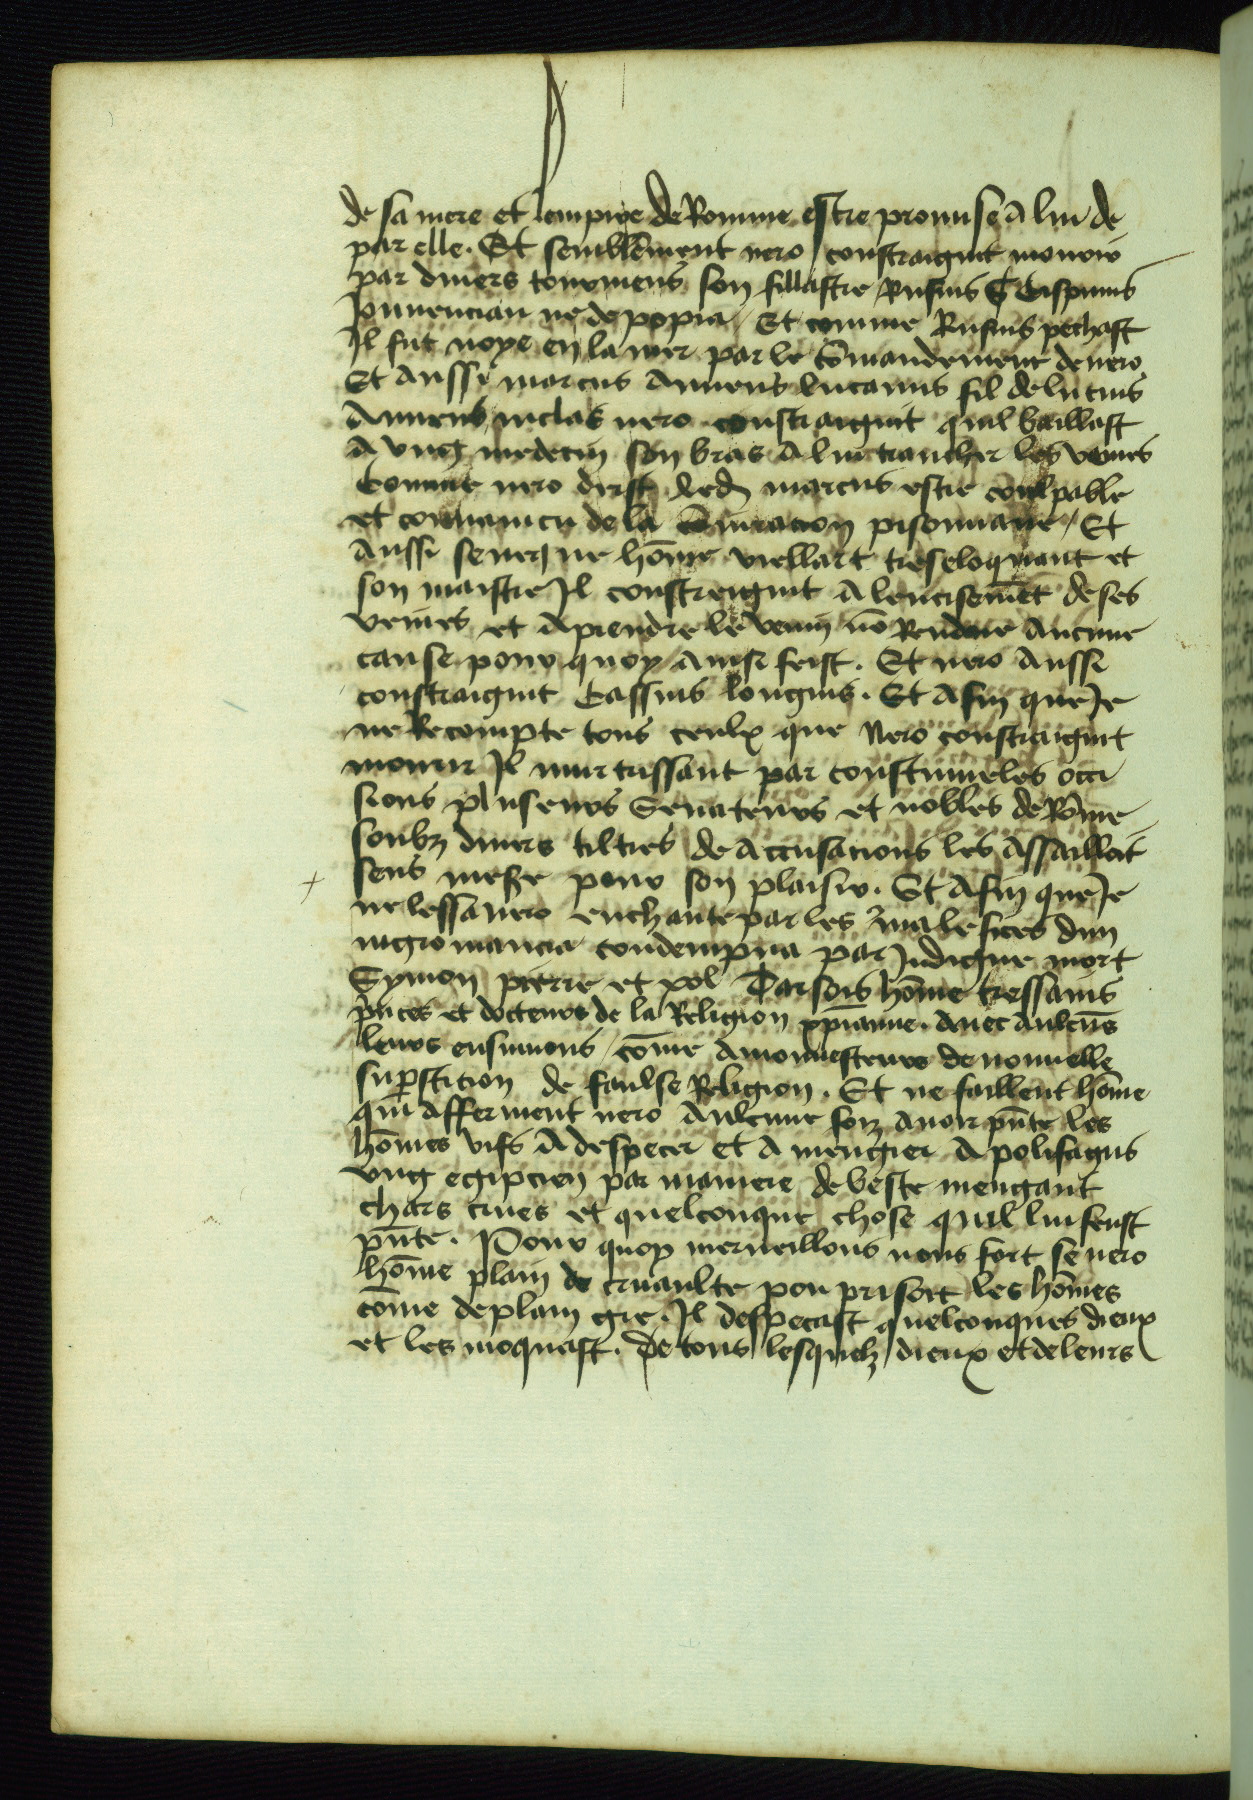 de sa mere et lempire de Romme estre promise a lui de
par elle. Et semblēment nero constraignit mourir
par divers tourmens son fillastre Rufius Crispinus
Jouvencian ne de popia. Et comme Rufius peschast
Il fut noye en la mer par le cōmandement de nero
Et aussi marcus Anneus lucanus fil de lucius
Anneus melas nero constraignit quil baillast
A ung medecin son bras a lui trancher les venes
Comme nero deist led marcus estre coulpable
et convaincu de la cōiuracion pisonnane / Et
Aussi seneque hōme viellart treseloquant et
son maistre Il constreignit a lencisemēt de ses
veines et a prendre le venin nō Rendue Aucune
cause pour quoy ainsi feist. Et nero Aussi
constraignit Cassius longius. Et afin que Je
ne Recompte tous ceulx que Nero constraignit
mourir Il murtrissant par coustumeles occi
sions pluseurs Senateurs et nobles de Rōme
soubz divers tiltres de Accusacions les assailloit
sens mesure pour son plaisir. Et afin que Je
ne lessa nero enchante par les malefices dun
nigromancia condempna par Indigne mort
Symon pierre et pol Tarsois hōme tressains
p̄nces et docteurs de la Religion xp̄ianne. Avec aulcūs
leurs ensuivons / cōme amonnesteurs de nouvelle
sup̄stition de faulse Religion. Et ne faillent hōme
qui afferment nero aulcune foiz avoir pn̄te les
hōmes vifs A despecer et a mengier A polifagus
ung egipcien par maniere de beste mengant
chars crues et quelconque chose quil lui feust
pn̄te. Pour quoy merveillons nous fort se nero
hōme plain de cruaulte pou prisoit les hōmes
cōme de plain gre. Il despecast quelconques dieux
et les moquast. de tous lesquelz dieux et de leurs